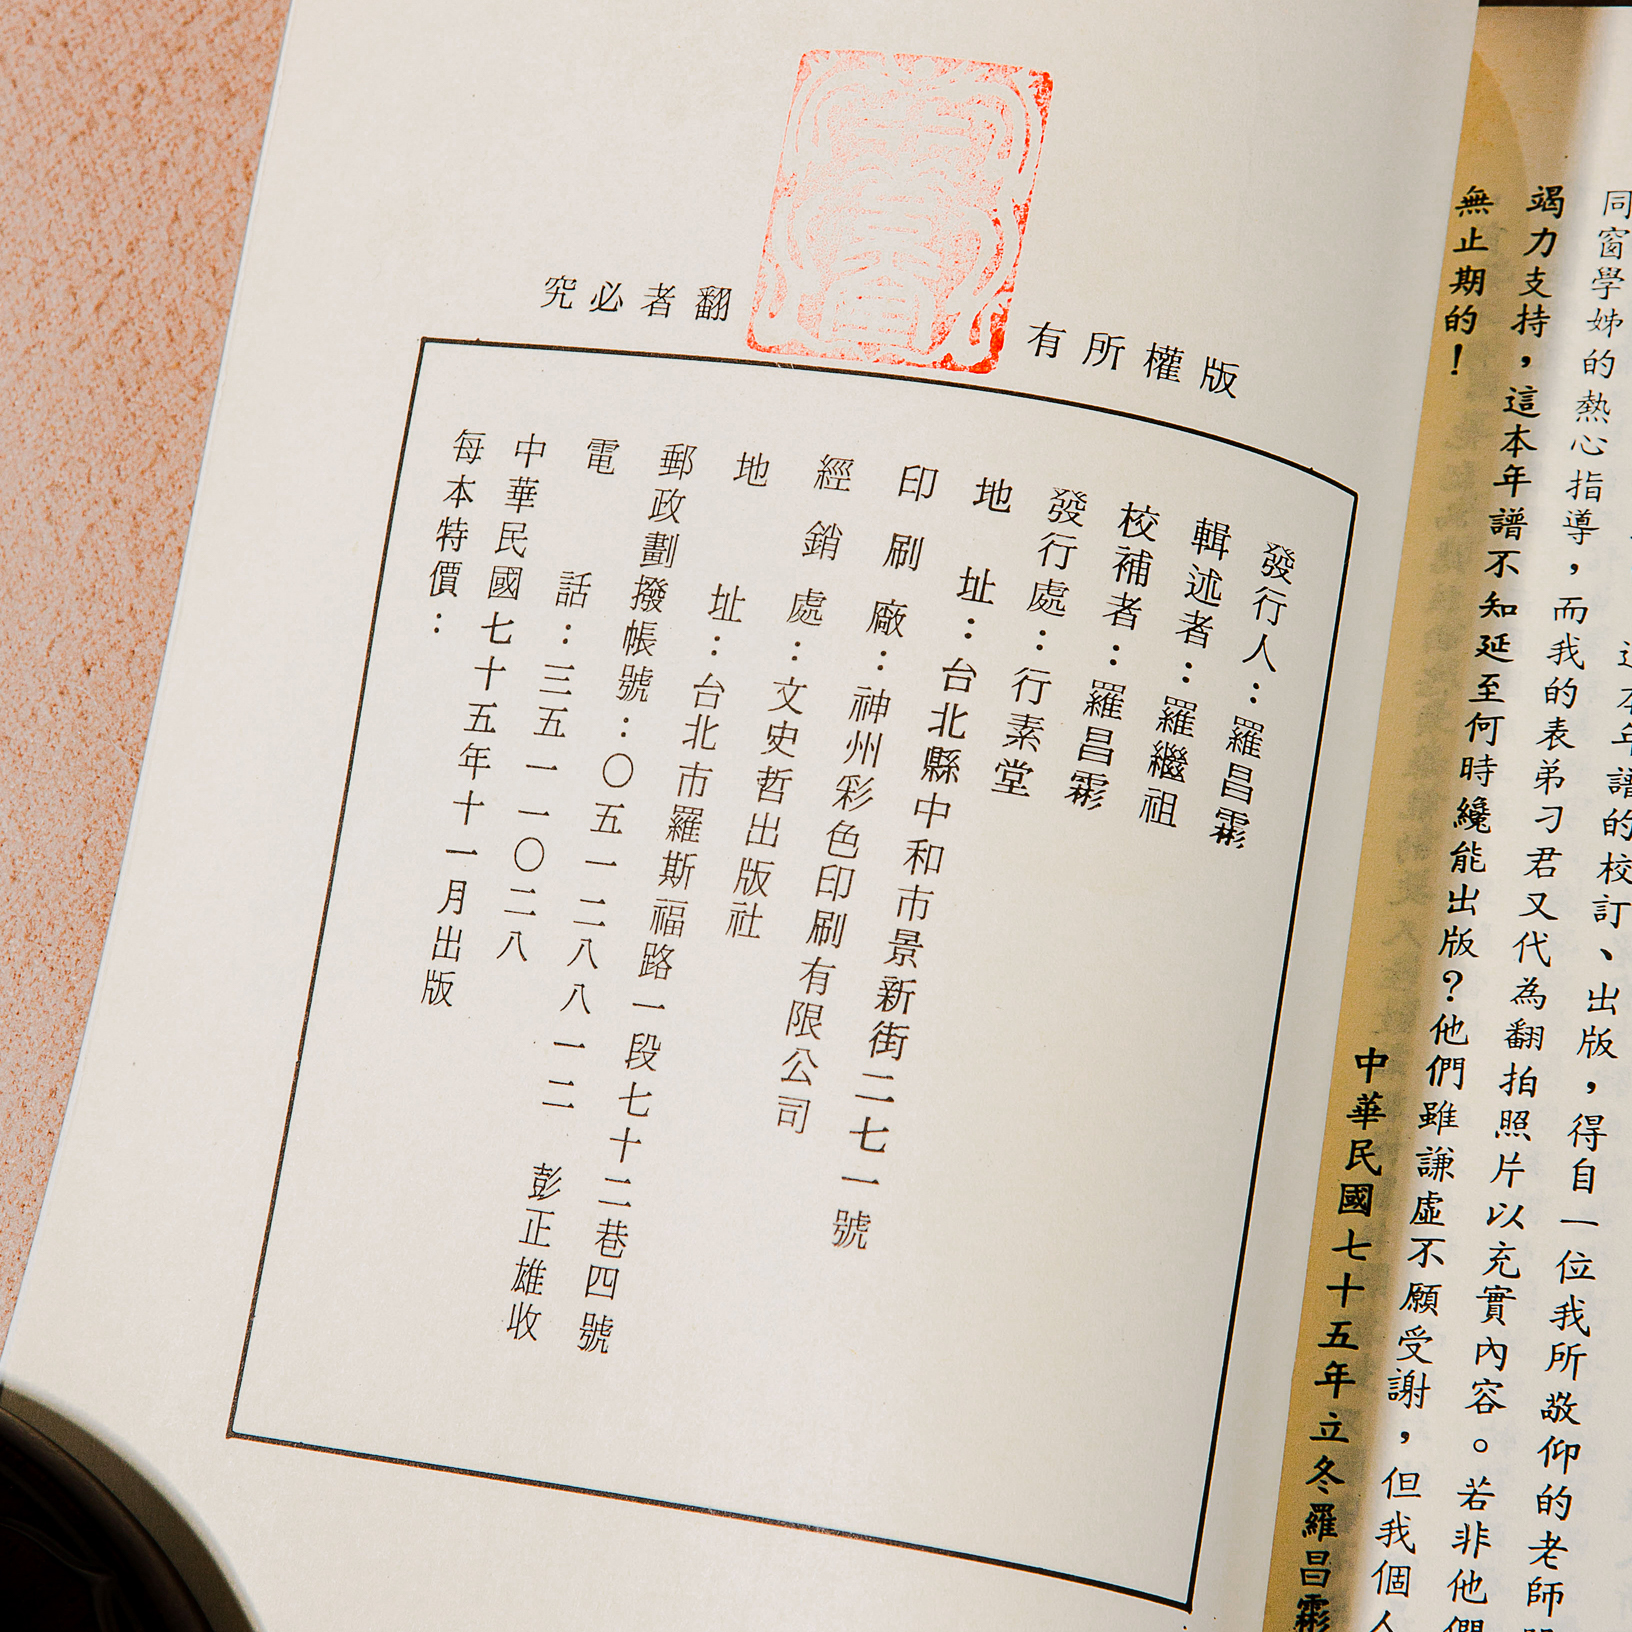 這本年譜的校訂、出版，得自一位我所敬仰的老師
同窗學姊的熱心指導，而我的表弟刁君又代為翻拍照片以充實內容。若非他們
竭力支持，這本年譜不知延至何時纔能出版？他們雖謙虛不願受謝，但我個人
無止期的！
中華民國七十五年立冬羅昌霦
版權所有
翻者必究
發行人：羅昌霦
輯述者：羅繼祖
校補者：羅昌霦
發行處：行素堂
地址：台北縣中和市景新街二七一號
印刷廠：神州彩色印刷有限公司
經銷處：文史哲出版社
地址：台北市羅斯福路一段七十二巷四號
郵政劃撥帳號：〇五一二八八一二 彭正雄收
電話：三五一一〇二八
中華民國七十五年十一月出版
每本特價：